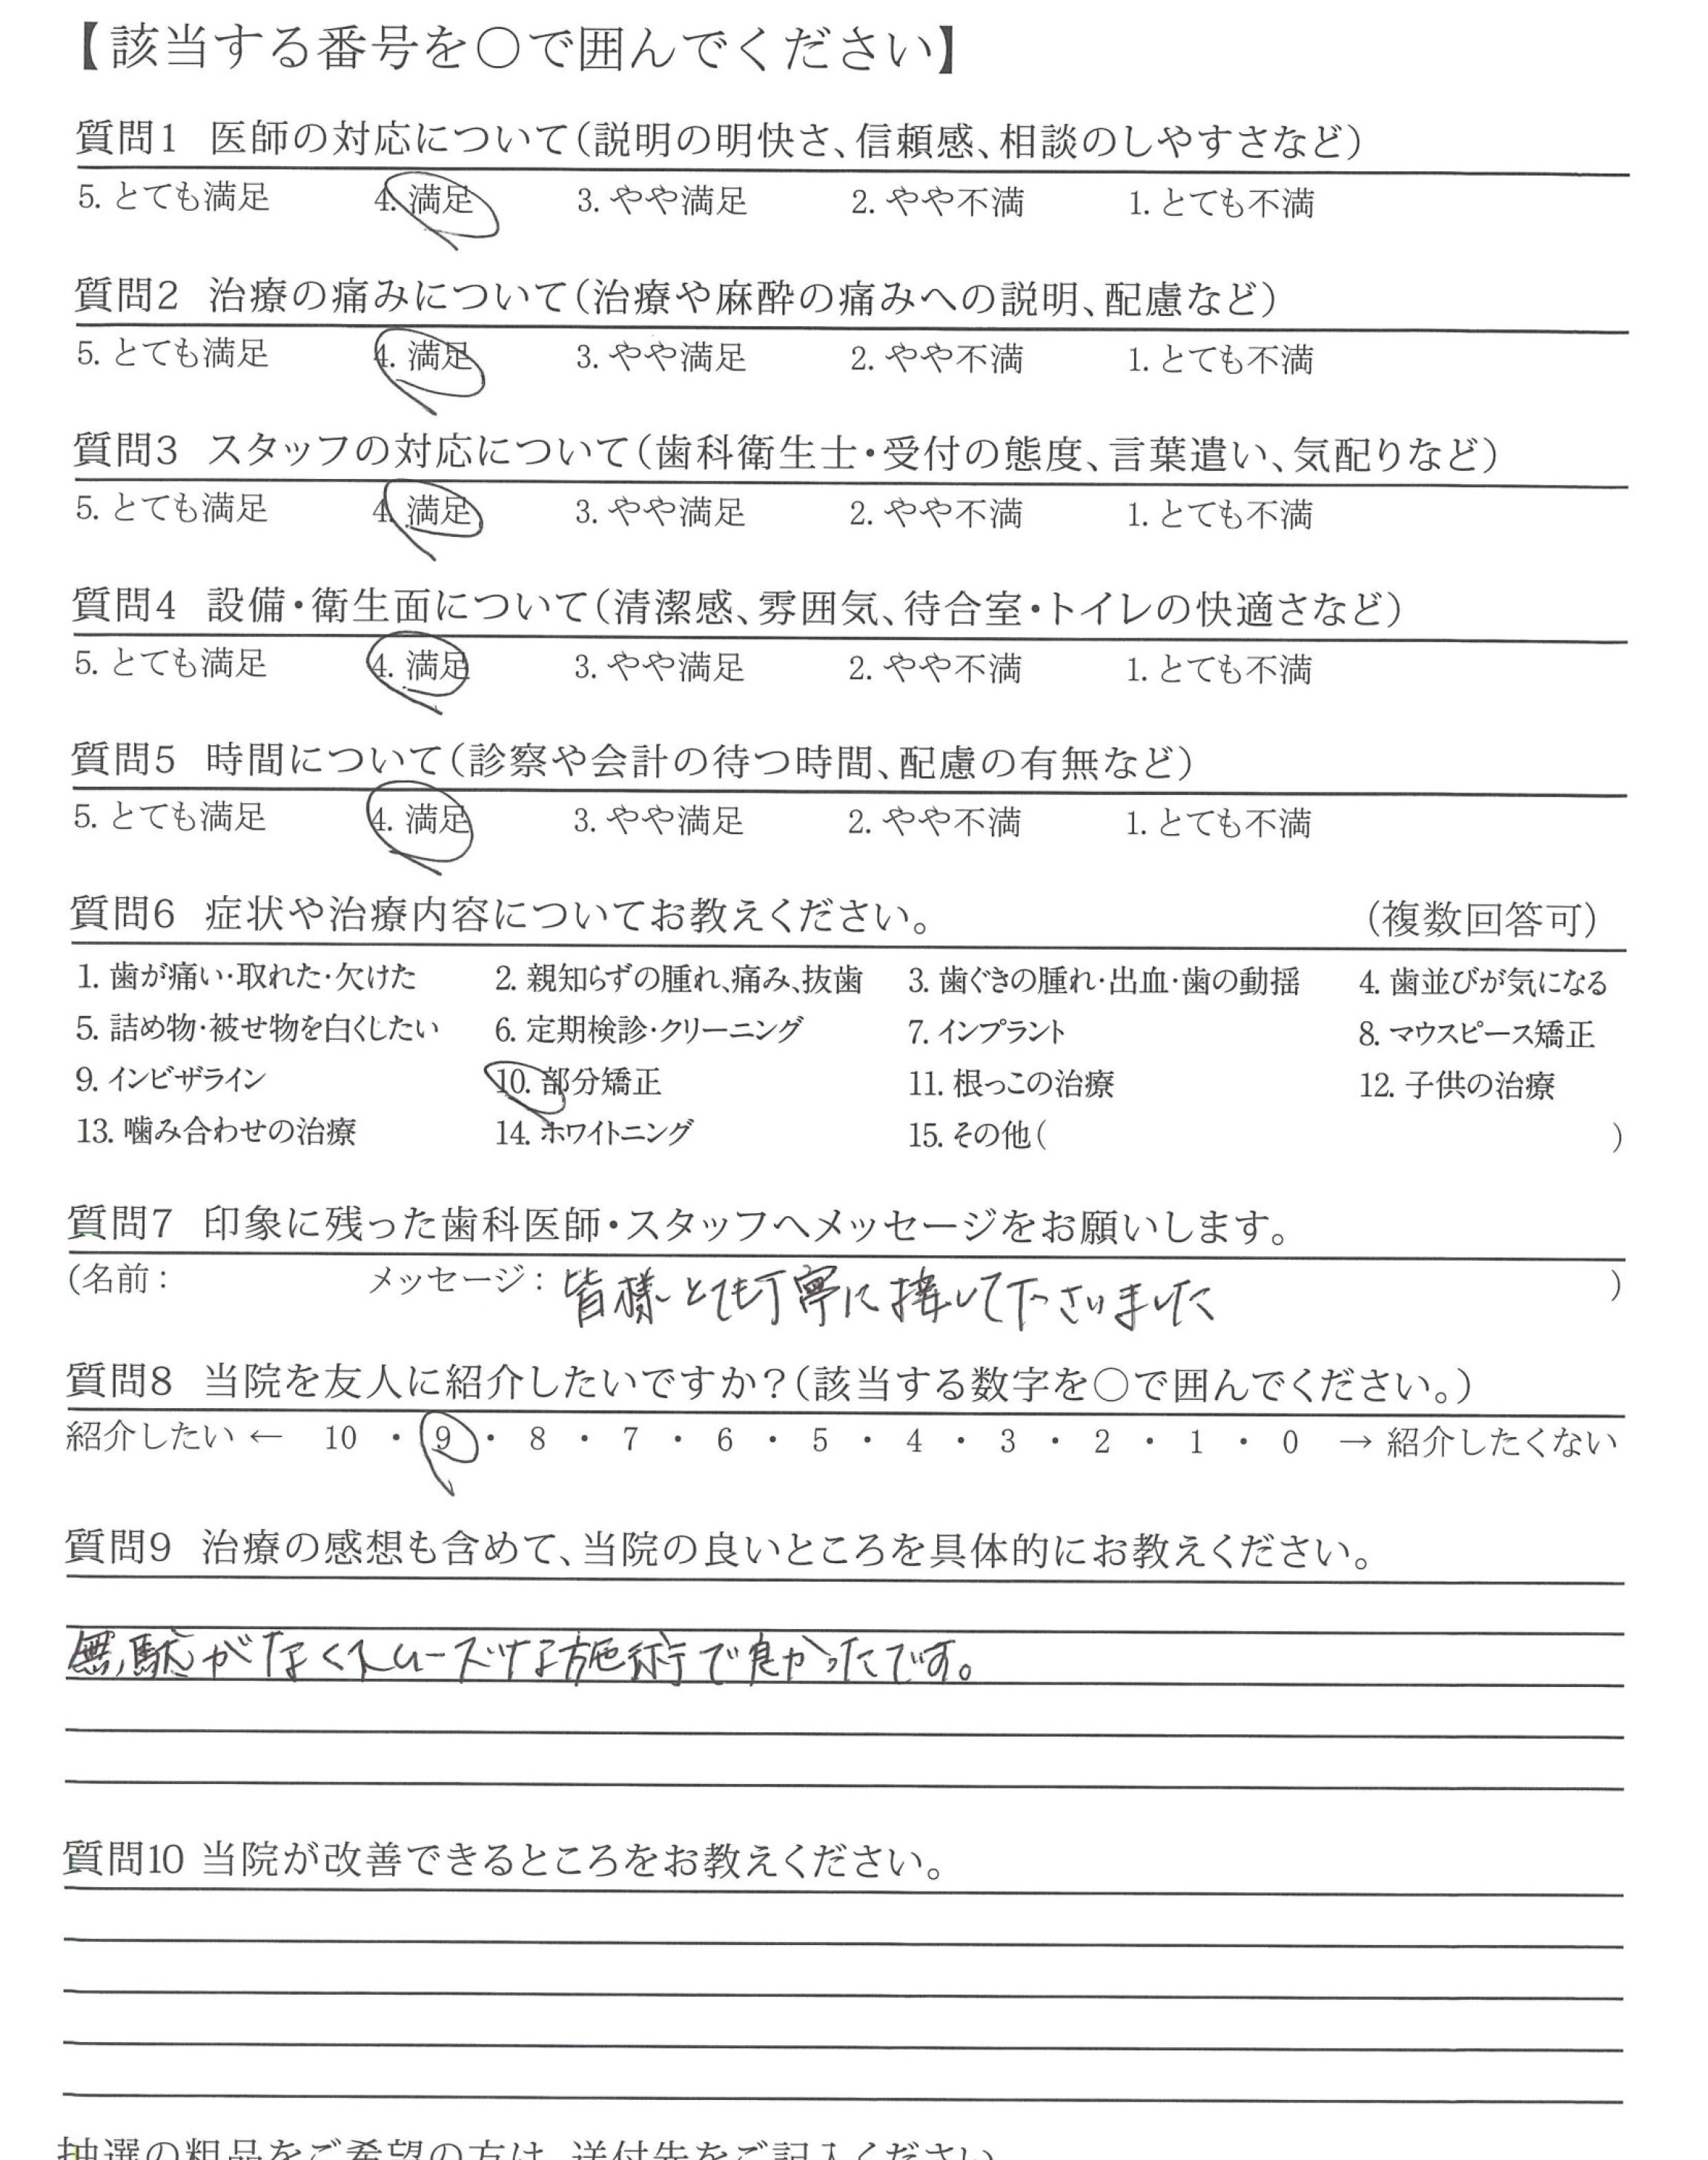 【該当する番号を〇で囲んでください】
質問1 医師の対応について(説明の明快さ、信頼感、相談のしやすさなど)
5. とても満足 4. 満足 3. やや満足 2. やや不満 1. とても不満
質問2 治療の痛みについて(治療や麻酔の痛みへの説明、配慮など)
5. とても満足 4. 満足 3. やや満足 2. やや不満 1. とても不満
質問3 スタッフの対応について(歯科衛生士・受付の態度、言葉遣い、気配りなど)
5. とても満足 4. 満足 3. やや満足 2. やや不満 1. とても不満
質問4 設備・衛生面について(清潔感、雰囲気、待合室・トイレの快適さなど)
5. とても満足 4. 満足 3. やや満足 2. やや不満 1. とても不満
質問5 時間について(診察や会計の待つ時間、配慮の有無など)
5. とても満足 4. 満足 3. やや満足 2. やや不満 1. とても不満
質問6 症状や治療内容についてお教えください。 (複数回答可)
1. 歯が痛い・取れた・欠けた 2. 親知らずの腫れ、痛み、抜歯 3. 歯ぐきの腫れ・出血・歯の動揺 4. 歯並びが気になる
5. 詰め物・被せ物を白くしたい 6. 定期検診・クリーニング 7. インプラント 8. マウスピース矯正
9. インビザライン 10. 部分矯正 11. 根っこの治療 12. 子供の治療
13. 噛み合わせの治療 14. ホワイトニング 15. その他( )
質問7 印象に残った歯科医師・スタッフへメッセージをお願いします。
(名前: メッセージ: 皆様とても丁寧に接して下さいました )
質問8 当院を友人に紹介したいですか?(該当する数字を〇で囲んでください。)
紹介したい ← 10 ・ 9 ・ 8 ・ 7 ・ 6 ・ 5 ・ 4 ・ 3 ・ 2 ・ 1 ・ 0 → 紹介したくない
質問9 治療の感想も含めて、当院の良いところを具体的にお教えください。
無駄がなくスムーズな施術で良かったです。
質問10 当院が改善できるところをお教えください。
抽選の粗品をご希望の方は、送付先をご記入ください